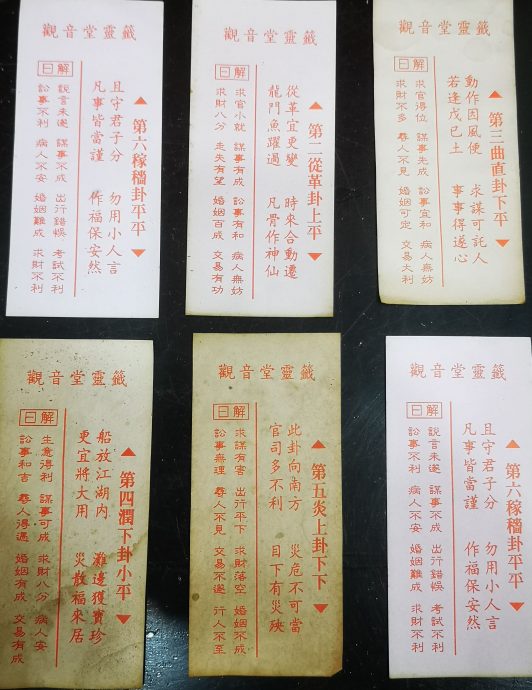 觀音堂靈籤
第六稼穡卦平平
且守君子分 勿用小人言
凡事皆當謹 作福保安然
解曰
說言未遂 謀事不成 出行錯悞 考試不利
訟事不利 病人不安 婚姻難成 求財不利
觀音堂靈籤
第二從革卦上平
從革宜更變 時來合動遷
龍門魚躍過 凡骨作神仙
解曰
求官小就 謀事有成 訟事有和 病人無妨
求財八分 走失有望 婚姻百成 交易有功
觀音堂靈籤
第三曲直卦下平
動作因風便 求謀可託人
若逢戊己土 事事得遂心
解曰
求官得位 謀事先成 訟事宜和 病人無妨
求財不多 尋人不見 婚姻可定 交易大利
觀音堂靈籤
第四潤下卦小平
船放江湖內 灘邊獲寶珍
更宜將大用 災散福來居
解曰
生意得利 謀事可成 求財八分 病人安
訟事和吉 尋人得遇 婚姻有成 交易有成
觀音堂靈籤
第五炎上卦下下
此卦向南方 災危不可當
官司多不利 目下有災殃
解曰
求謀有害 出行平下 求財落空 婚姻不成
訟事無理 尋人不見 交易不遂 行人不至
觀音堂靈籤
第六稼穡卦平平
且守君子分 勿用小人言
凡事皆當謹 作福保安然
解曰
說言未遂 謀事不成 出行錯悞 考試不利
訟事不利 病人不安 婚姻難成 求財不利